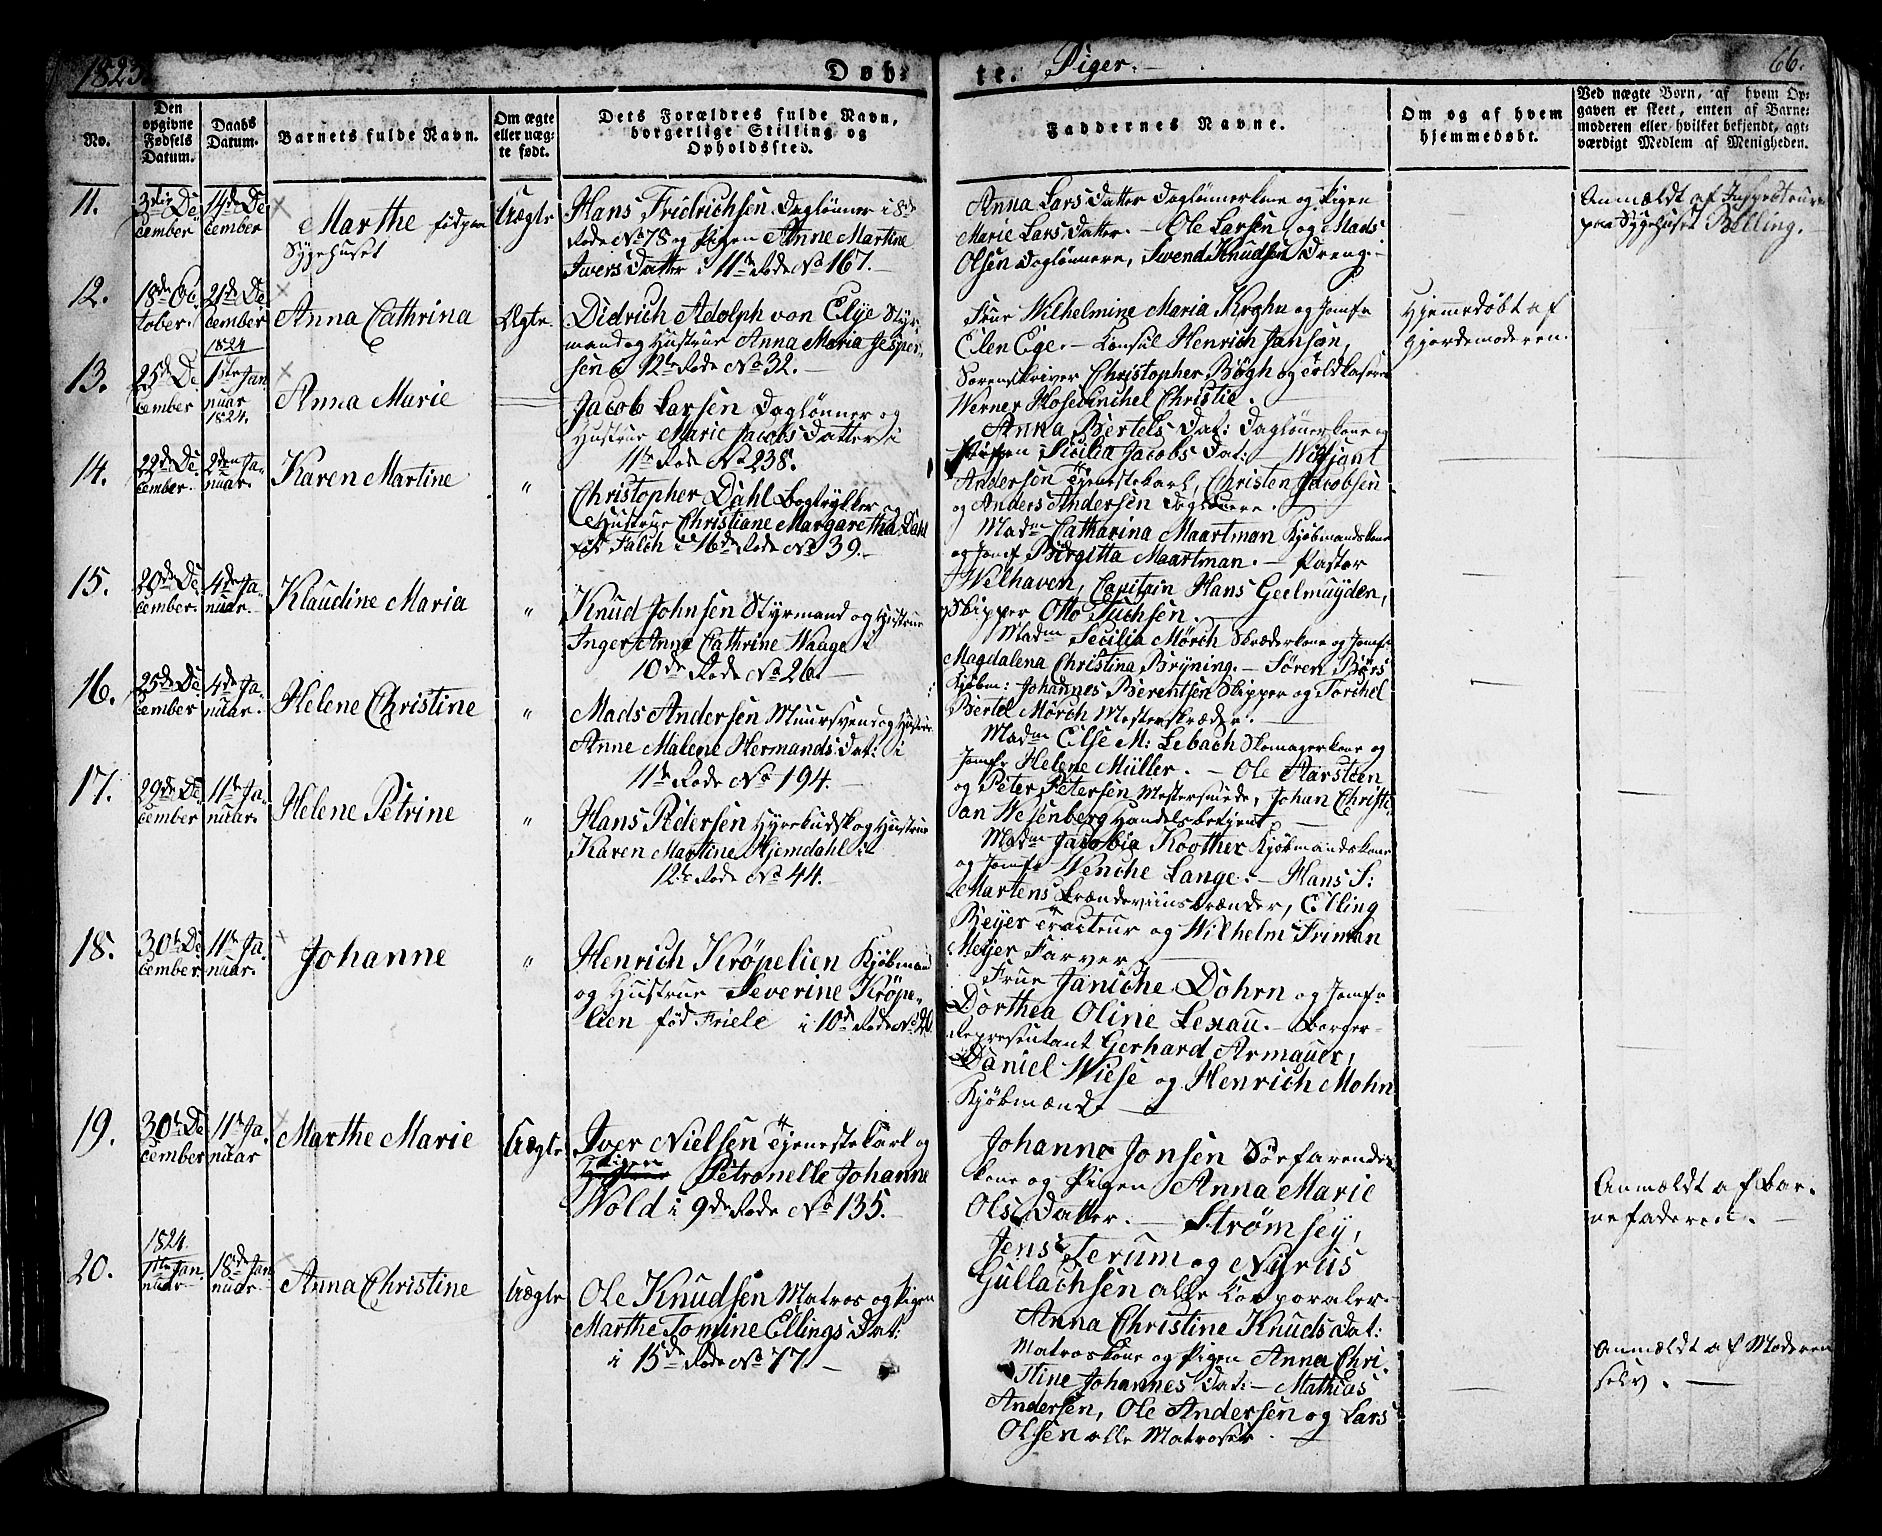 1823. Døb- te. Piger. 66.
No.
Den opgivne Fødsels Datum.
Daabs Datum.
Barnets fulde Navn.
Om ægte eller uægte født.
Dets Forældres fulde Navn, borgerlige Stilling og Opholdssted.
Faddernes Navne.
Om og af hvem hjemmedøbt.
Ved uægte Børn, af hvem Opgaven er skeet, enten af Barnemoderen eller hvilket bekjendt, agtværdigt Medlem af Menigheden.
11.
3die December
14de December
Marthe født paa Sygehuset
Uægte
Hans Fridrichsen Daglønner i 8de
Rode No 78 og Pigen Anne Martine
Iwers Datter i 11te Rode No 167.
Anna Lars Datter Daglønnerkone og Pigen
Marie Lars Datter. Ole Larsen og Mads
Olsen Daglønnere, Swend Knudsen Dreng.
Anmældt af Inspecteuren
paa Sygehuset Belling.
12.
18de October.
21de December
Anna Cathrina
Ægte.
Didrich Adolph von Elye Styr-
mand og Hustrue Anna Maria Jesper-
sen i 12te Rode No 32.
Frue Wilhelmine Maria Krohn og Jomfr
Elen Ege. Consul Henrich Janson,
Sorenskriver Christopher Bøgh og Toldkaserer
Werner Hosewinchel Christie.
Hjemmedøbt af
Gjordemoderen.
13.
25de December
1824 1ste Januar 1824.
Anna Marie
Jacob Larsen Daglønner og
Hustrue Marie Jacobs Datter i
11te Rode No 238.
Anna Bertels Dat: Daglønerkone og
Pigen Sicilia Jacobs Dat: Witjant
Andersen Tjenestekarl, Christen Jacobsen
og Anders Andersen Daglønere.
14.
22de December.
2den Januar.
Karen Martine
"
Christopher Dahl Bogtrykker og
Hustrue Christiane Margaretha Dahl
født Falch i 16de Rode No 39.
Madm Catharina Maartman Kjøbmandskone
og Jomf Birgitta Maartman. Pastor
Welhaven, Capitain Hans Geelmuyden,
Skipper Otto Tuchsen.
15.
20de December.
4de Januar.
Klaudine Maria
"
Knud Johnsen Styrmand og Hustrue
Inger Anna Cathrine Waage i
10de Rode No 26.
Madm Secilia Mörch Skræderkone og Jomfr
Magdalena Christina Bryning. Søren Børs
Kjøbm: Johannes Berentsen Skipper og Torchel
Bertel Mörch Mesterskræder.
16.
25de December
4de Januar.
Helene Christine
"
Mads Andersen Muursvend og Hustrue
Anne Malene Hermands Dat: i
11te Rode No 194.
Madm Else M: Lebach Skomagerkone og
Jomfr Helene Müller. Ole Aarsteen
og Peter Petersen Mestersmede, Johan Christi-
an Wesenberg Handelsbetjent.
17.
29de December
11te Januar.
Helene Petrine
"
Hans Pedersen Hyrekudsk og Hustrue
Karen Martine Hjemdahl i
12te Rode No 44.
Madm Jacobia Koother Kjøbmandskone
og Jomfr Wenche Lange. Hans S:
Martens Brændeviinsbrænder, Elling
Beyer Tracteur og Wilhelm Friman
Meyer Farver.
18.
30te December
11te Januar.
Johanne
"
Henrich Krøpelien Kjøbmand
og Hustrue Severine Krøpe-
lien fød Friele i 10de Rode No
Frue Janiche Dohrn og Jomfr
Dorthea Oline Lexau. Borger-
Repræsentant Gerhard Armauer,
Daniel Wiese og Henrich Mohn
Kjøbmænd.
19.
30te December
11te Januar
Marthe Marie
Uægte
Iver Nielsen Tjenestekarl og
Pigen Petronelle Johanne
Wold i 9de Rode No 135.
Johanne Jonsen Søefarende-
kone og Pigen Anna Marie
Ols Datter. Strømsey,
Jens Terum og Nirus
Gullachsen alle Korporaler.
Anmældt af Bar-
nefaderen.
20.
1824. 1ste Januar
18de Januar.
Anna Christine
Uægte
Ole Knudsen Matros og Pigen
Marthe Tomine Ellings Dat:
i 15de Rode No 77.
Anna Christine Knuds Dat:
Matroskone og Pigen Anna Chri-
stine Johannes Dat: Mathias
Andersen, Ole Andersen og Lars
Olsen alle Matroser.
Anmældt af Moderen
selv.